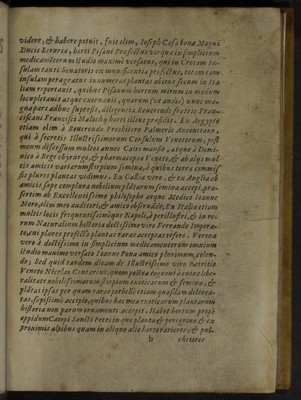 videre, & habere potuit, fuit olim, Ioseph Casa bona Magni
Ducis Etruriæ, horti Pisani Præfectus vir quæ in simplicium
medicamentorum studio maximè versatus, qui in Cretam In-
sulam tanti Senatoris ex munificentia profectus, tot cum eam
insulam peragrasset innumeras plantas abiens secum in Ita
liam reportauit, quibus Pisanum hortum mirum in modum
locupletauit atque exornauit, quarum (vt audio) nunc ma-
gna pars adhuc superest, diligentia Reuerendi fratris Fran-
cisani Francisci Malochij horti illius præfecti. Ex Aegypto
etiam olim à Reuerendo Presbitero Palmerio Anconitano,
qui à secretis Illustrissimorum Consulum Venetorum, post
meum discessum multos annos Cairi mansit, atque à Domi-
nico à Rege chyrurgo, & pharmacopœo Veneto, & ab alijs mul
tis amicis variarum stirpium semina, è quibus terra commis-
sis plures plantas vidimus. Ex Gallia vero, & ex Anglia ab
amicis sæpe complura nobilium plãtarum semina accepi, præ-
sertim ab Excellentissimo philosopho atque Medico Ioanne
Moro, olim meo auditori, & amico obseruãdo; En Italia etiam
multis locis frequentissimè quæ Napoli, à perillustri, & in re-
rum Naturalium historia doctissimo viro Ferrando Impera-
to, qui plures profectò plantas raras accepta refero. Verona
vero à doctissimo in simplicium medicamentorum omnium
studio maximè versato Ioanne Pona amico plurimum, colen-
do; Sed quid tandem dicam de Illustrissimo viro Patritio
Veneto Nicolao Contareno, quem postea cognoui à cuius libe-
ralitate nobilissimarum stirpium exoticarum & semina, &
plãtas ipsas per quam raras perbellè etiam quasdam delinea-
tas, sæpissimè accipio, quibus hoc mea exoticarum plantarum
historia non parum ornamenti accepit. Habet hortum propè
oppidum Campi Sancti Petri in quo plantæ & peregrinæ & ex
proximis alpibus quam in aliquo alio hortæ rariores; & pul-
b christes